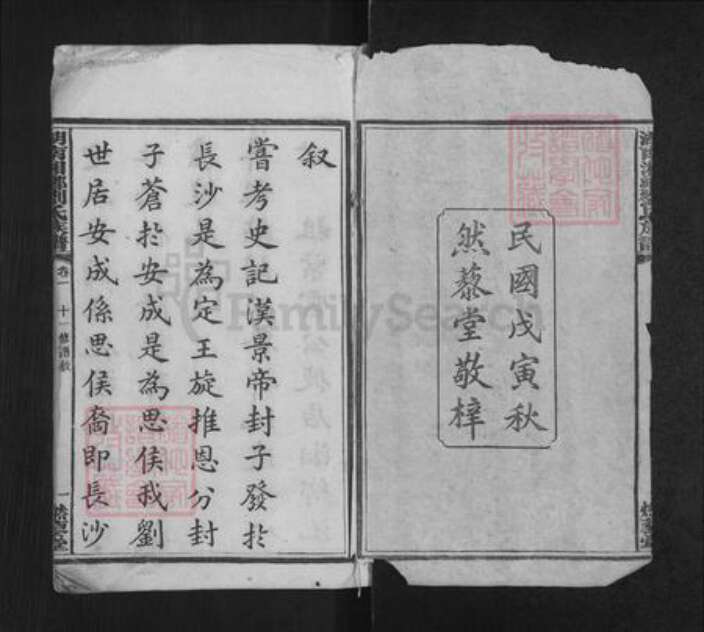 民國戊寅秋
然藜堂敬梓
叙
嘗考史記漢景帝封子發於
長沙是為定王旋推恩分封
子蒼於安成是為思侯我劉
世居安成係思侯裔即長沙
劉氏族譜
卷一
十一修譜敘
一
FamilySearch